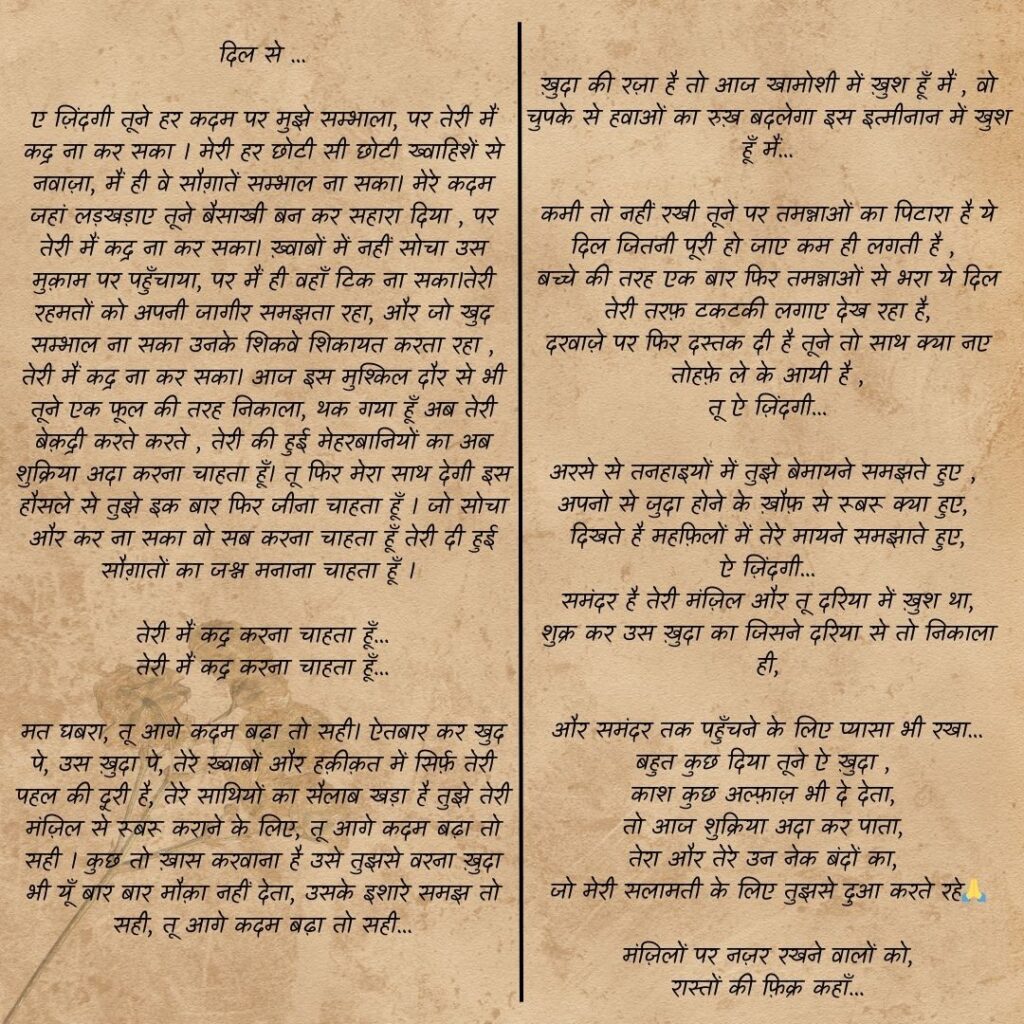 दिल से ...
ए ज़िंदगी तूने हर कदम पर मुझे सम्भाला, पर तेरी मैं
कद्र ना कर सका । मेरी हर छोटी सी छोटी ख्वाहिशें से
नवाज़ा, मैं ही वे सौग़ातें सम्भाल ना सका। मेरे कदम
जहां लड़खड़ाए तूने बैसाखी बन कर सहारा दिया , पर
तेरी मैं कद्र ना कर सका। ख़्वाबों में नहीं सोचा उस
मुक़ाम पर पहुँचाया, पर मैं ही वहाँ टिक ना सका।तेरी
रहमतों को अपनी जागीर समझता रहा, और जो खुद
सम्भाल ना सका उनके शिकवे शिकायत करता रहा ,
तेरी मैं कद्र ना कर सका। आज इस मुश्किल दौर से भी
तूने एक फूल की तरह निकाला, थक गया हूँ अब तेरी
बेक़द्री करते करते , तेरी की हुई मेहरबानियों का अब
शुक्रिया अदा करना चाहता हूँ। तू फिर मेरा साथ देगी इस
हौसले से तुझे इक बार फिर जीना चाहता हूँ । जो सोचा
और कर ना सका वो सब करना चाहता हूँ तेरी दी हुई
सौग़ातों का जश्न मनाना चाहता हूँ ।
तेरी मैं कद्र करना चाहता हूँ...
तेरी मैं कद्र करना चाहता हूँ...
मत घबरा, तू आगे कदम बढ़ा तो सही। ऐतबार कर खुद
पे, उस ख़ुदा पे, तेरे ख़्वाबों और हक़ीक़त में सिर्फ़ तेरी
पहल की दूरी है, तेरे साथियों का सैलाब खड़ा है तुझे तेरी
मंज़िल से रूबरू कराने के लिए, तू आगे कदम बढ़ा तो
सही । कुछ तो ख़ास करवाना है उसे तुझसे वरना खुदा
भी यूँ बार बार मौक़ा नहीं देता, उसके इशारे समझ तो
सही, तू आगे कदम बढ़ा तो सही...
ख़ुदा की रज़ा है तो आज खामोशी में ख़ुश हूँ मैं , वो
चुपके से हवाओं का रुख़ बदलेगा इस इत्मीनान में खुश
हूँ मैं...
कमी तो नहीं रखी तूने पर तमन्नाओं का पिटारा है ये
दिल जितनी पूरी हो जाए कम ही लगती है ,
बच्चे की तरह एक बार फिर तमन्नाओं से भरा ये दिल
तेरी तरफ़ टकटकी लगाए देख रहा है,
दरवाज़े पर फिर दस्तक दी है तूने तो साथ क्या नए
तोहफ़े ले के आयी है ,
तू ऐ ज़िंदगी...
अरसे से तनहाइयों में तुझे बेमायने समझते हुए ,
अपनो से जुदा होने के ख़ौफ़ से रूबरू क्या हुए,
दिखते है महफ़िलों में तेरे मायने समझाते हुए,
ऐ ज़िंदगी...
समंदर है तेरी मंज़िल और तू दरिया में ख़ुश था,
शुक्र कर उस ख़ुदा का जिसने दरिया से तो निकाला
ही,
और समंदर तक पहुँचने के लिए प्यासा भी रखा...
बहुत कुछ दिया तूने ऐ ख़ुदा ,
काश कुछ अल्फ़ाज़ भी दे देता,
तो आज शुक्रिया अदा कर पाता,
तेरा और तेरे उन नेक बंदों का,
जो मेरी सलामती के लिए तुझसे दुआ करते रहे🙏
मंज़िलों पर नज़र रखने वालों को,
रास्तों की फ़िक्र कहाँ...